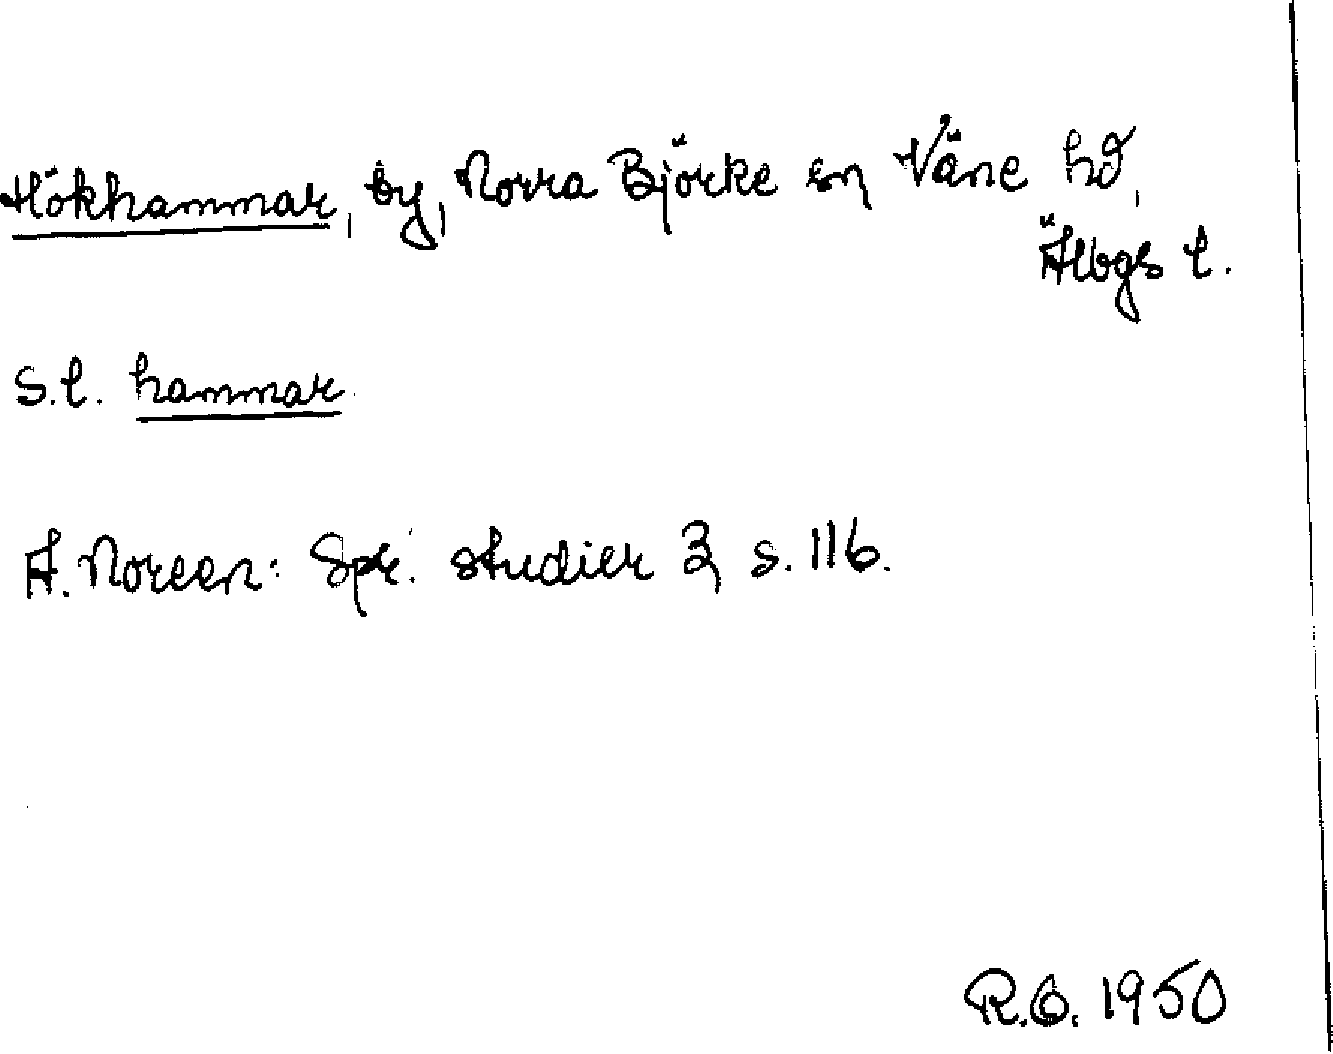 Hökhammar, by, Norra Björke sn Väne hd,
Älvbgs l.
S.l. hammar.
A. Noreen: Spr. studier 3, s. 116.
R.O. 1950